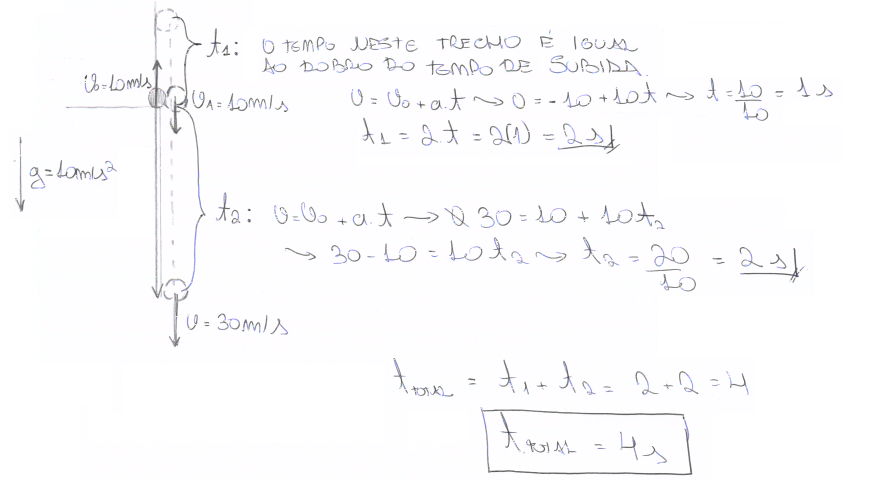 t₁: O TEMPO NESTE TRECHO É IGUAL
AO DOBRO DO TEMPO DE SUBIDA.
v₀=10m/s
v₁=10m/s
v = v₀ + a.t → 0 = -10 + 10t → t = 10/10 = 1 s
t₁ = 2.t = 2(1) = 2 s
g=10m/s²
t₂: v=v₀ + a.t → 30 = 10 + 10t₂
→ 30-10 = 10t₂ → t₂ = 20/10 = 2 s
v = 30m/s
tTOTAL = t₁ + t₂ = 2 + 2 = 4
tTOTAL = 4s